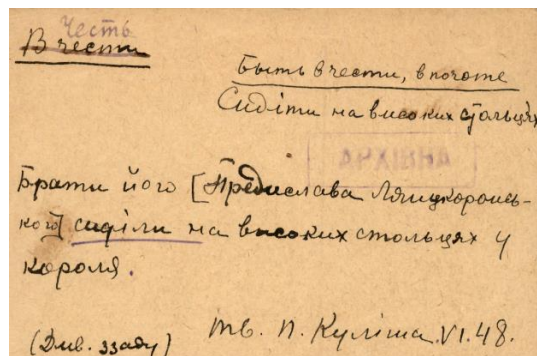 Честь
В чести
Быть в чести, в почете
Сидіти на високих стольцях
АРХІВНА
Брати його [Предислава Лянцкоронсь-
кого] сиділи на високих стольцях у
короля.
(Див. ззаду) Тв. П. Куліша. VI. 48.